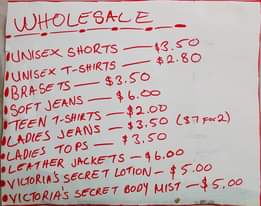 WHOLESALE
• UNISEX SHORTS — $3.50
• UNISEX T-SHIRTS — $2.80
• BRASETS — $3.50
• SOFT JEANS — $6.00
• TEEN T-SHIRTS — $2.00
• LADIES JEANS — $3.50 ($7 for 2)
• LADIES TOPS — $3.50
• LEATHER JACKETS — $6.00
• VICTORIA'S SECRET LOTION — $5.00
• VICTORIA'S SECRET BODY MIST — $5.00